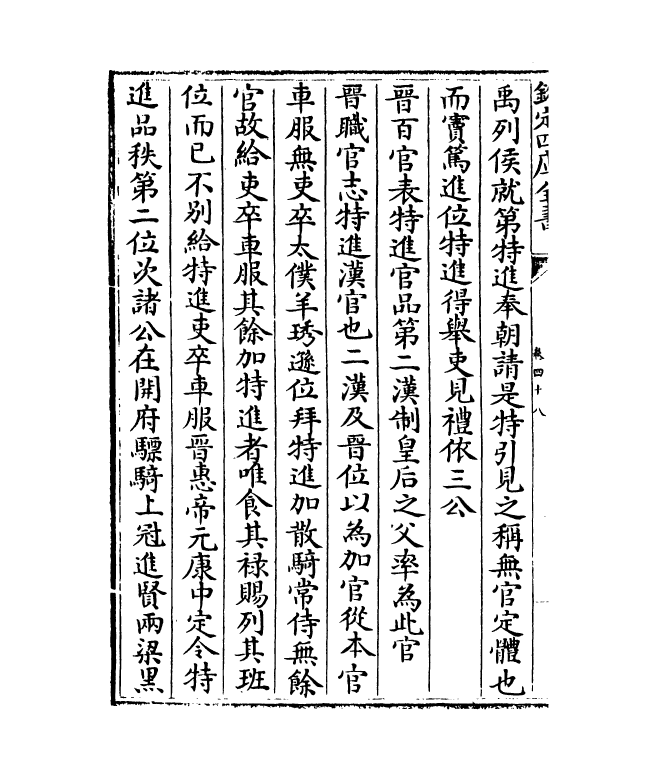 欽定四庫全書
卷四十八
禹列侯就第特進奉朝請是特引見之稱無官定體也
而實篤進位特進得舉吏見禮依三公
晉百官表特進官品第二漢制皇后之父率為此官
晉職官志特進漢官也二漢及晉位以為加官從本官
車服無吏卒太僕羊琇遜位拜特進加散騎常侍無餘
官故給吏卒車服其餘加特進者唯食其祿賜列其班
位而已不別給特進吏卒車服晉惠帝元康中定令特
進品秩第二位次諸公在開府驃騎上冠進賢兩梁黑